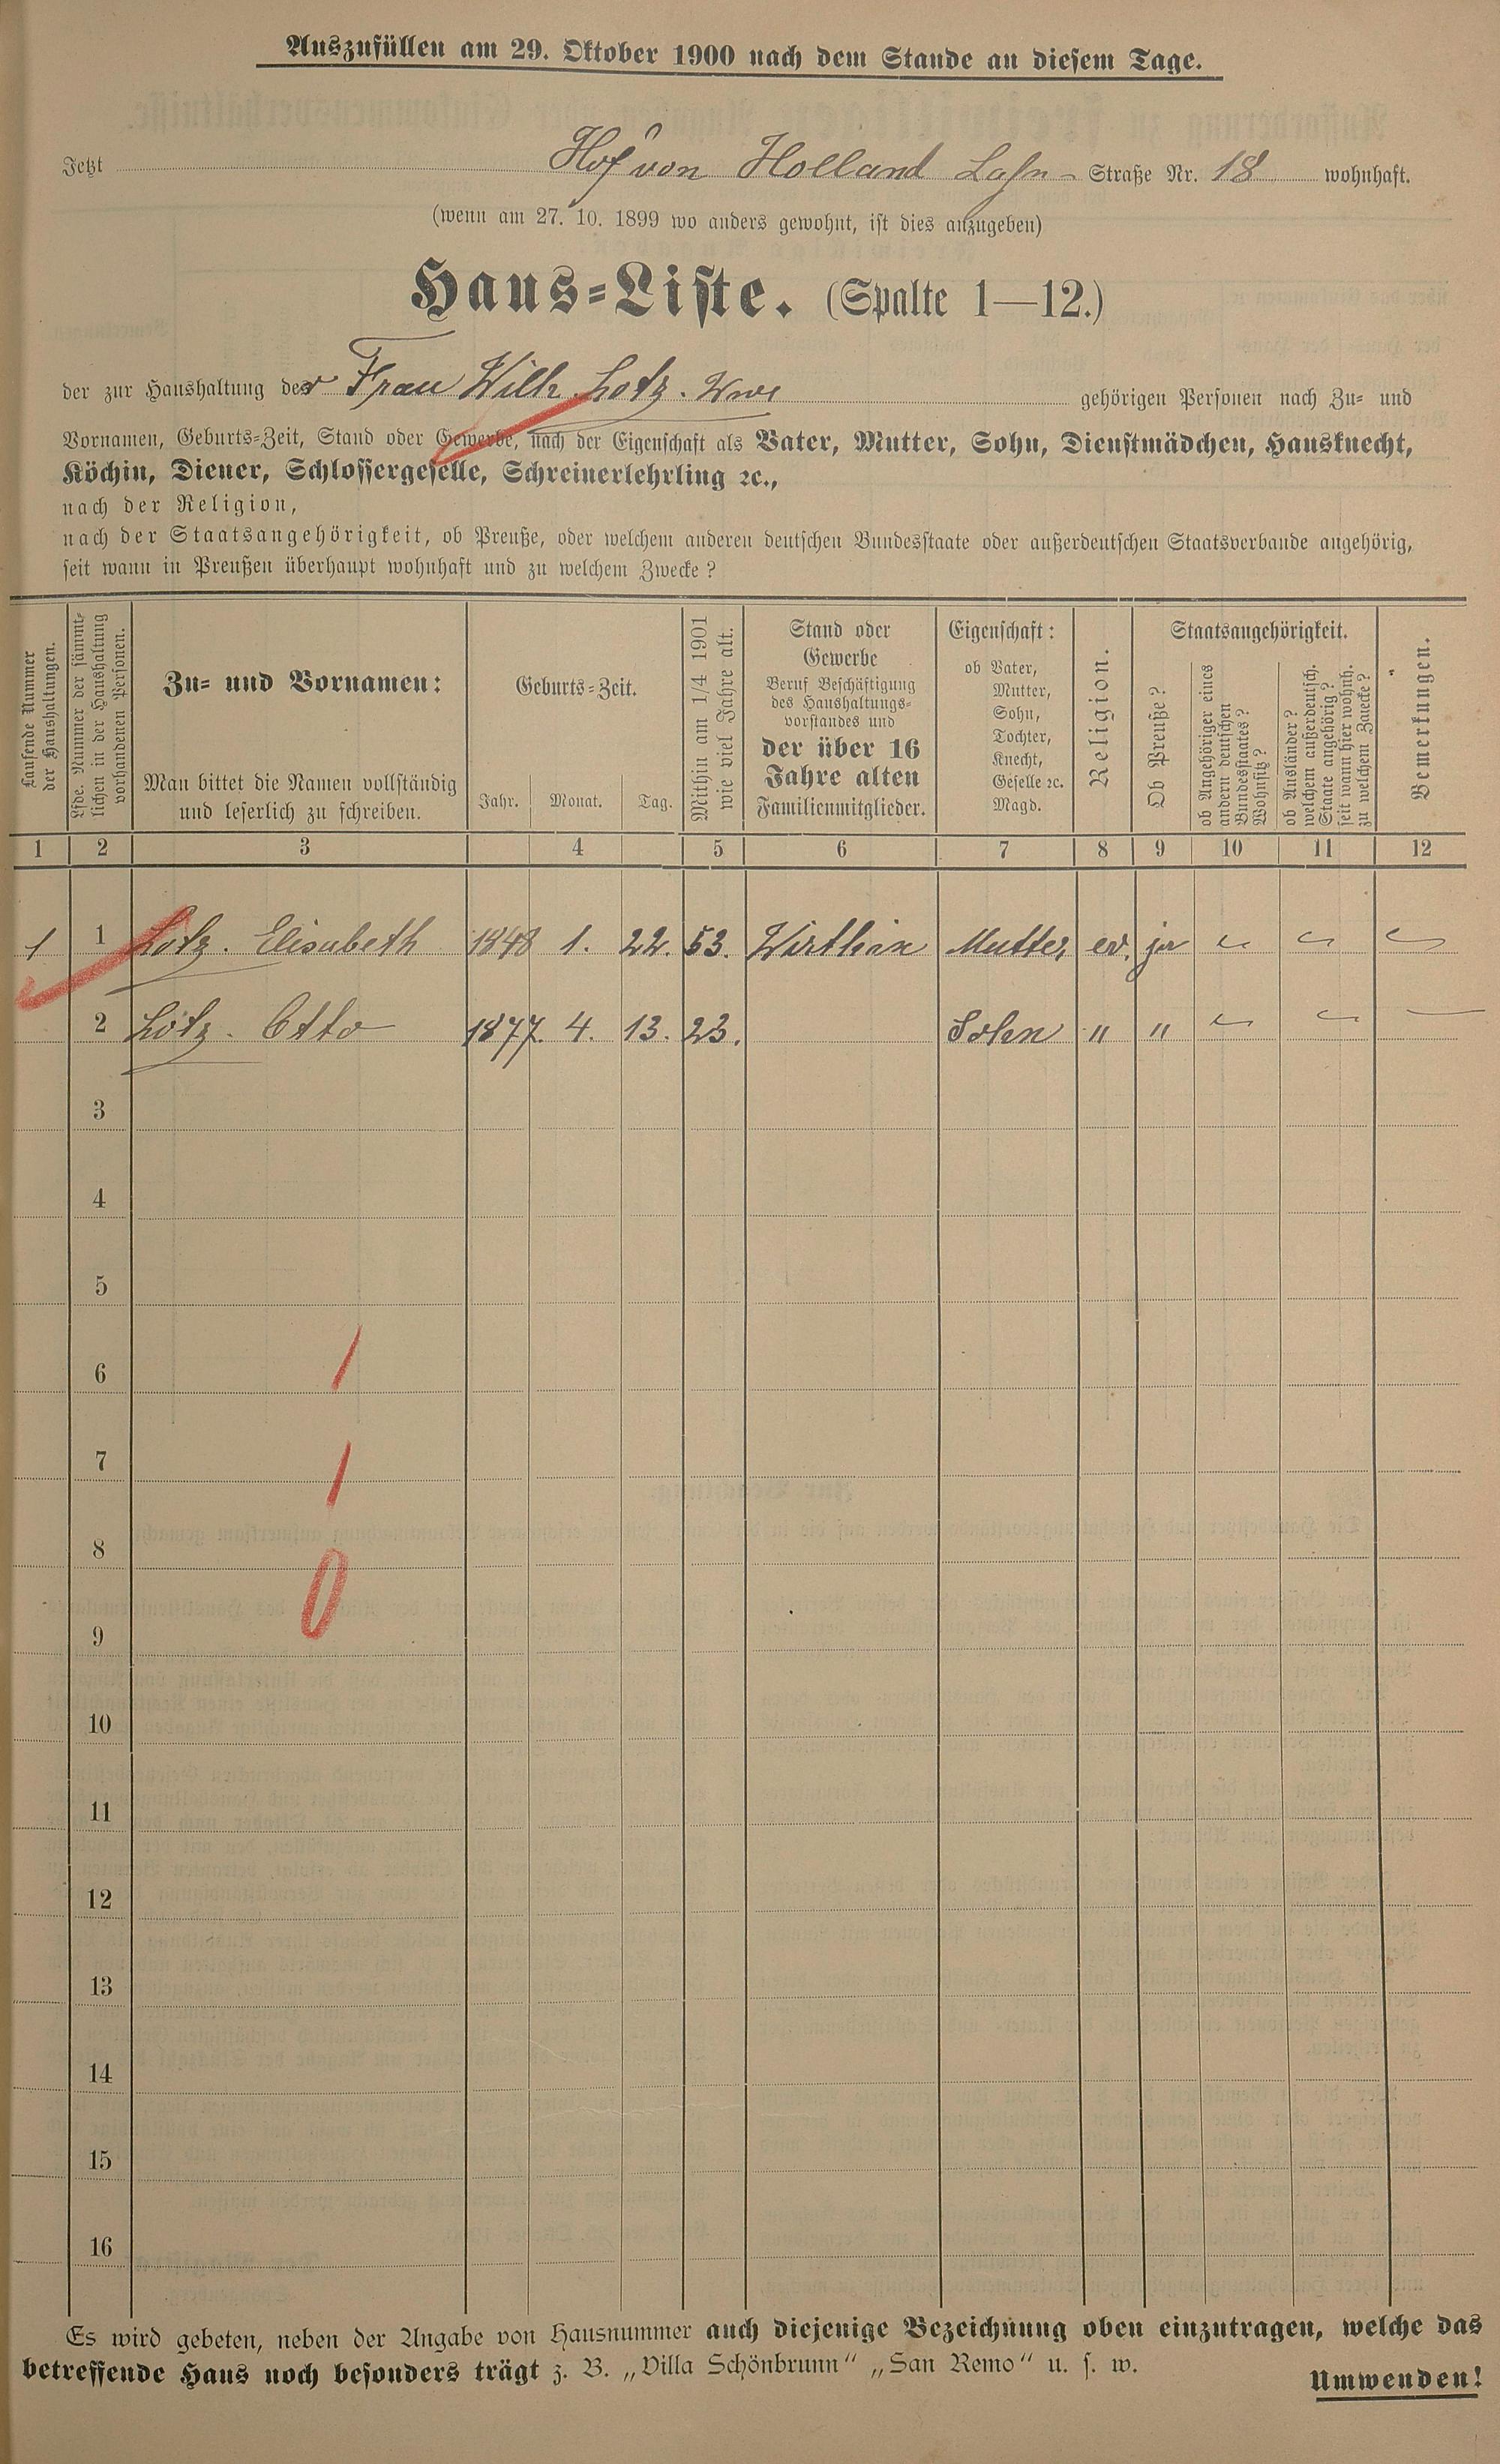 Auszufüllen am 29. Oktober 1900 nach dem Stande an diesem Tage.
Jetzt Hof von Holland Lahn- Straße Nr. 18 wohnhaft.
(wenn am 27. 10. 1899 wo anders gewohnt, ist dies anzugeben)
Haus-Liste. (Spalte 1—12.)
der zur Haushaltung der Frau Wilh. Lotz. Wwe gehörigen Personen nach Zu- und
Vornamen, Geburts-Zeit, Stand oder Gewerbe, nach der Eigenschaft als Vater, Mutter, Sohn, Dienstmädchen, Hausknecht,
Köchin, Diener, Schlossergeselle, Schreinerlehrling ꝛc.,
nach der Religion,
nach der Staatsangehörigkeit, ob Preuße, oder welchem anderen deutschen Bundesstaate oder außerdeutschen Staatsverbande angehörig,
seit wann in Preußen überhaupt wohnhaft und zu welchem Zwecke?
Laufende Nummer
der Haushaltungen.
Lfde. Nummer der sämmt-
lichen in der Haushaltung
vorhandenen Personen.
Zu- und Vornamen:
Man bittet die Namen vollständig
und leserlich zu schreiben.
Geburts-Zeit.
Jahr. Monat. Tag.
Mithin am 1/4 1901
wie viel Jahre alt.
Stand oder
Gewerbe
Beruf Beschäftigung
des Haushaltungs-
vorstandes und
der über 16
Jahre alten
Familienmitglieder.
Eigenschaft:
ob Vater,
Mutter,
Sohn,
Tochter,
Knecht,
Geselle ꝛc.
Magd.
Religion.
Staatsangehörigkeit.
Ob Preuße?
ob Angehöriger eines
andern deutschen
Bundesstaates?
Wohnsitz?
ob Ausländer?
welchem außerdeutsch.
Staate angehörig?
seit wann hier wohnh.
zu welchem Zwecke?
Bemerkungen.
1 2 3 4 5 6 7 8 9 10 11 12
1 1 Lotz. Elisabeth 1848 1. 22. 53. Wirthin Mutter ev. ja
2 Lotz. Otto 1877. 4. 13. 23. Sohn " "
3
4
5
6 1
7 1
8
0
9
10
11
12
13
14
15
16
Es wird gebeten, neben der Angabe von Hausnummer auch diejenige Bezeichnung oben einzutragen, welche das
betreffende Haus noch besonders trägt z. B. „Villa Schönbrunn“ „San Remo“ u. s. w.
Umwenden!